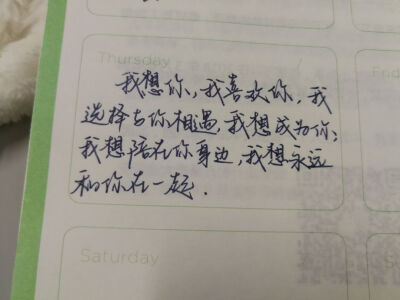 Thursday
我想你，我喜欢你，我
选择与你相遇，我想成为你；
我想陪在你身边，我想永远
和你在一起．
Saturday